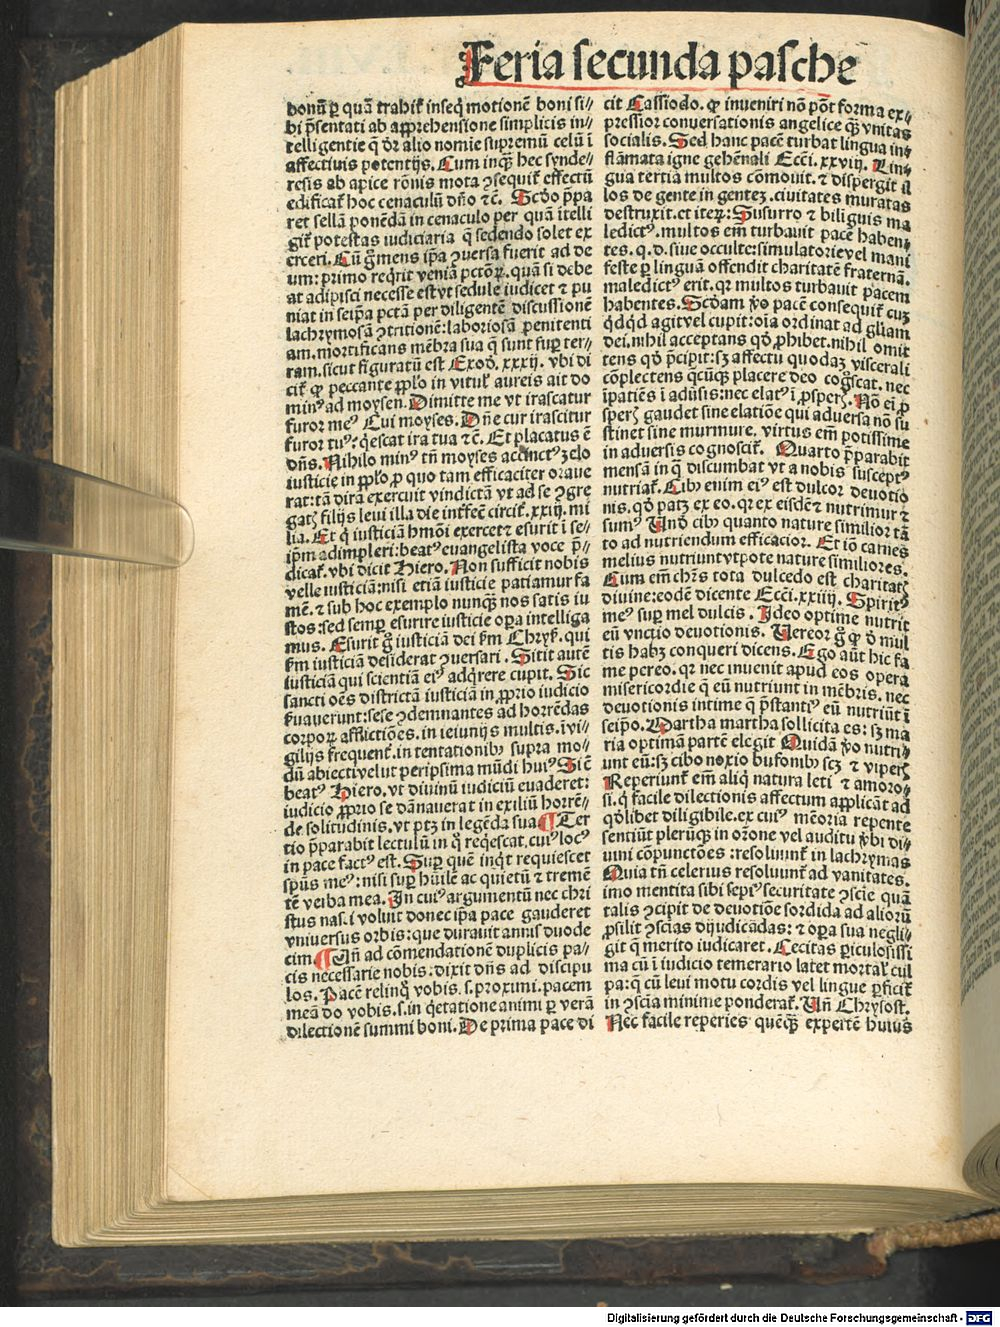 Feria secunda pasche
bonū ꝑ quā trahit̄ inseq̄ motionē boni si⸗
bi p̄sentati ab apprehensione simplicis in⸗
telligentie q̄ dr̄ alio nomīe supremū celū ī
affectiuis potentijs. Cum inqͣꝫ hec synde⸗
resis ab apice rōnis mota ꝯsequit̄ effectū
edificat̄ hoc cenaculū dn̄o ⁊c̄. Scd̄o p̄pa
ret sellā ponēdā in cenaculo per quā itelli
git̄ potestas iudiciaria q̄ sedendo solet ex
erceri. Cū gͦ mens ip̄a ꝯuersa fuerit ad de
um: primo reqͥrit veniā pctōꝝ. quā si debe
at adipisci necesse est vt sedule iudicet ⁊ pu
niat in seip̄a pctā per diligentē discussionē
lachrymosā ꝯtritionē: laboriosā penitenti
am. mortificans mēbra sua q̄ sunt suꝑ ter⸗
ram. sicut figuratū est Exod. xxxij. vbi di
cit̄ ꝙ peccante pplo in vitul' aureis ait do
minꝰ ad moysen. Dimitte me vt irascatur
furor meꝰ Cui moyses. Dn̄e cur irascitur
furor tuꝰ: qͥescat ira tua ⁊c̄. Et placatus ē
dn̄s. Nihilo minꝰ tn̄ moyses accinctꝰ zelo
iusticie in pplo ꝓ quo tam efficaciter oraue
rat: tā dirā exercuit vindictā vt ad se ꝯgre
gatꝭ filijs leui illa die intfecē circit̄. xxiij. mi
lia. Et qͥ iusticiā hmōi exercet ⁊ esurit ī se⸗
ip̄m adimpleri: beatꝰ euangelista voce p̄⸗
dicat̄. vbi dicit Hiero. Non sufficit nobis
velle iusticiā: nisi etiā iusticie patiamur fa
mē. ⁊ sub hoc exemplo nunqͣꝫ nos satis iu
stos: sed semꝑ esurire iusticie oꝑa intelliga
mus. Esurit gͦ iusticiā dei ẜm Chryš. qui
ẜm iusticiā desiderat ꝯuersari. Sitit autē
iusticiā qui scientiā eiꝰ adqͥrere cupit. Sic
sancti oēs districtā iusticiā in ꝓprio iudicio
ẜuauerunt: sese ꝯdemnantes ad horrēdas
corpoꝝ afflictiōes. in ieiunijs multis. ī vi⸗
gilijs frequent̄. in tentationibꝫ supra mo⸗
dū abiecti velut peripsima mūdi huiꝰ Sic̄
beatꝰ Hiero. vt diuinū iudiciū euaderet:
iudicio ꝓprio se dānauerat in exiliū horrē⸗
de solitudinis. vt ptꝫ in legēda sua. ¶ Ter
tio p̄parabit lectulū in qͦ reqͥescat. cuiꝰ locꝰ
in pace factꝰ est. Suꝑ quē inqͥt requiescet
spūs meꝰ: nisi suꝑ hūilē ac quietū ⁊ tremē
tē verba mea. In cuiꝰ argumentū nec chri
stus nasci voluit donec ip̄a pace gauderet
vniuersus orbis: que durauit annis duode
cim. ¶ Uñ ad cōmendationē duplicis pa⸗
cis necessarie nobis: dixit dn̄s ad discipu
los. Pacē relinqͦ vobis. s. proximi. pacem
meā do vobis. s. in qͥetatione animi ꝑ verā
dilectionē summi boni. De prima pace di
cit Cassiodo. ꝙ inueniri nō pōt forma ex⸗
pressior conuersationis angelice qͣꝫ vnitas
socialis. Sed hanc pacē turbat lingua in⸗
flāmata igne gehēnali Ecci. xxviij. Lin⸗
gua tertia multos cōmouit. ⁊ dispergit il
los de gente in gentez. ciuitates muratas
destruxit. et iteꝝ: Susurro ⁊ biliguis ma
ledictꝰ. multos em̄ turbauit pacē haben⸗
tes. q. d. siue occulte: simulatorie vel mani
feste ꝑ linguā offendit charitatē fraternā.
maledictꝰ erit. qꝛ multos turbauit pacem
habentes. Scd̄am v̊o pacē consequit̄ cuꝫ
qͥdqͥd agit vel cupit: oīa ordinat ad gl̄iam
dei. nihil acceptans qd̄ ꝓhibet. nihil omit
tens qd̄ p̄cipit: sꝫ affectu quodaꝫ viscerali
cōplectens qͨūqꝫ placere deo cogͦscat. nec
ipatiēs ī adūsis: nec elatꝰ ī ꝓsperꝭ. Nō ei ꝓ
sperꝭ gaudet sine elatiōe qui aduersa nō su
stinet sine murmure. virtus em̄ potissime
in aduersis cognoscit̄. Quarto p̄parabit
mensā in q̄ discumbat vt a nobis susceptꝰ
nutriat̄. Cibꝰ enim eiꝰ est dulcor deuotio
nis. qd̄ patꝫ ex eo. qꝛ ex eisdē ⁊ nutrimur ⁊
sumꝰ Und̄ cibꝰ quanto nature similior tā
to ad nutriendum efficacior. Et iō carnes
melius nutriunt vtpote nature similiores.
Cum em̄ chr̄s tota dulcedo est charitatꝭ
diuine: eodē dicente Ecci. xxiiij. Spiritꝰ
meꝰ suꝑ mel dulcis. Ideo optime nutrit
eū vnctio deuotionis. Uereor gͦ ꝙ d̄ mul
tis habꝫ conqueri dicens. Ego aūt hic fa
me pereo. qꝛ nec inuenit apud eos opera
misericordie q̄ eū nutriunt in mēbris. nec
deuotionis intime q̄ p̄stantiꝰ eū nutriūt ī
seip̄o. Martha martha sollicita es: sꝫ ma
ria optimā partē elegit Quidā v̊o nutri⸗
unt eū: sꝫ cibo noxio bufonibꝫ scꝫ ⁊ viperꝭ
Reperiunt̄ em̄ aliqͥ natura leti ⁊ amoro⸗
si. qͥ facile dilectionis affectum applicāt ad
qd̄libet diligibile. ex cuiꝰ mēoria repente
sentiūt plerūqꝫ in orōne vel auditu v̊bi di⸗
uini cōpunctōes: resoluunt̄ in lachrymas
Quia tn̄ celerius resoluunt̄ ad vanitates.
imo mentita sibi sepiꝰ securitate ꝯscīe quā
talis ꝯcipit de deuotiōe sordida ad alioꝝ
ꝓsilit ꝯscīas dijudicādas: ⁊ oꝑa sua negli⸗
git q̄ merito iudicaret. Cecitas ꝑiculosissi
ma cū ī iudicio temerario latet mortal' cul
pa: q̄ cū leui motu cordis vel lingue ꝑficit̄
in ꝯscīa minime ponderat̄. Uñ Chrysost.
Nec facile reperies quēqͣꝫ expertē huius
Digitalisierung gefördert durch die Deutsche Forschungsgemeinschaft - DFG